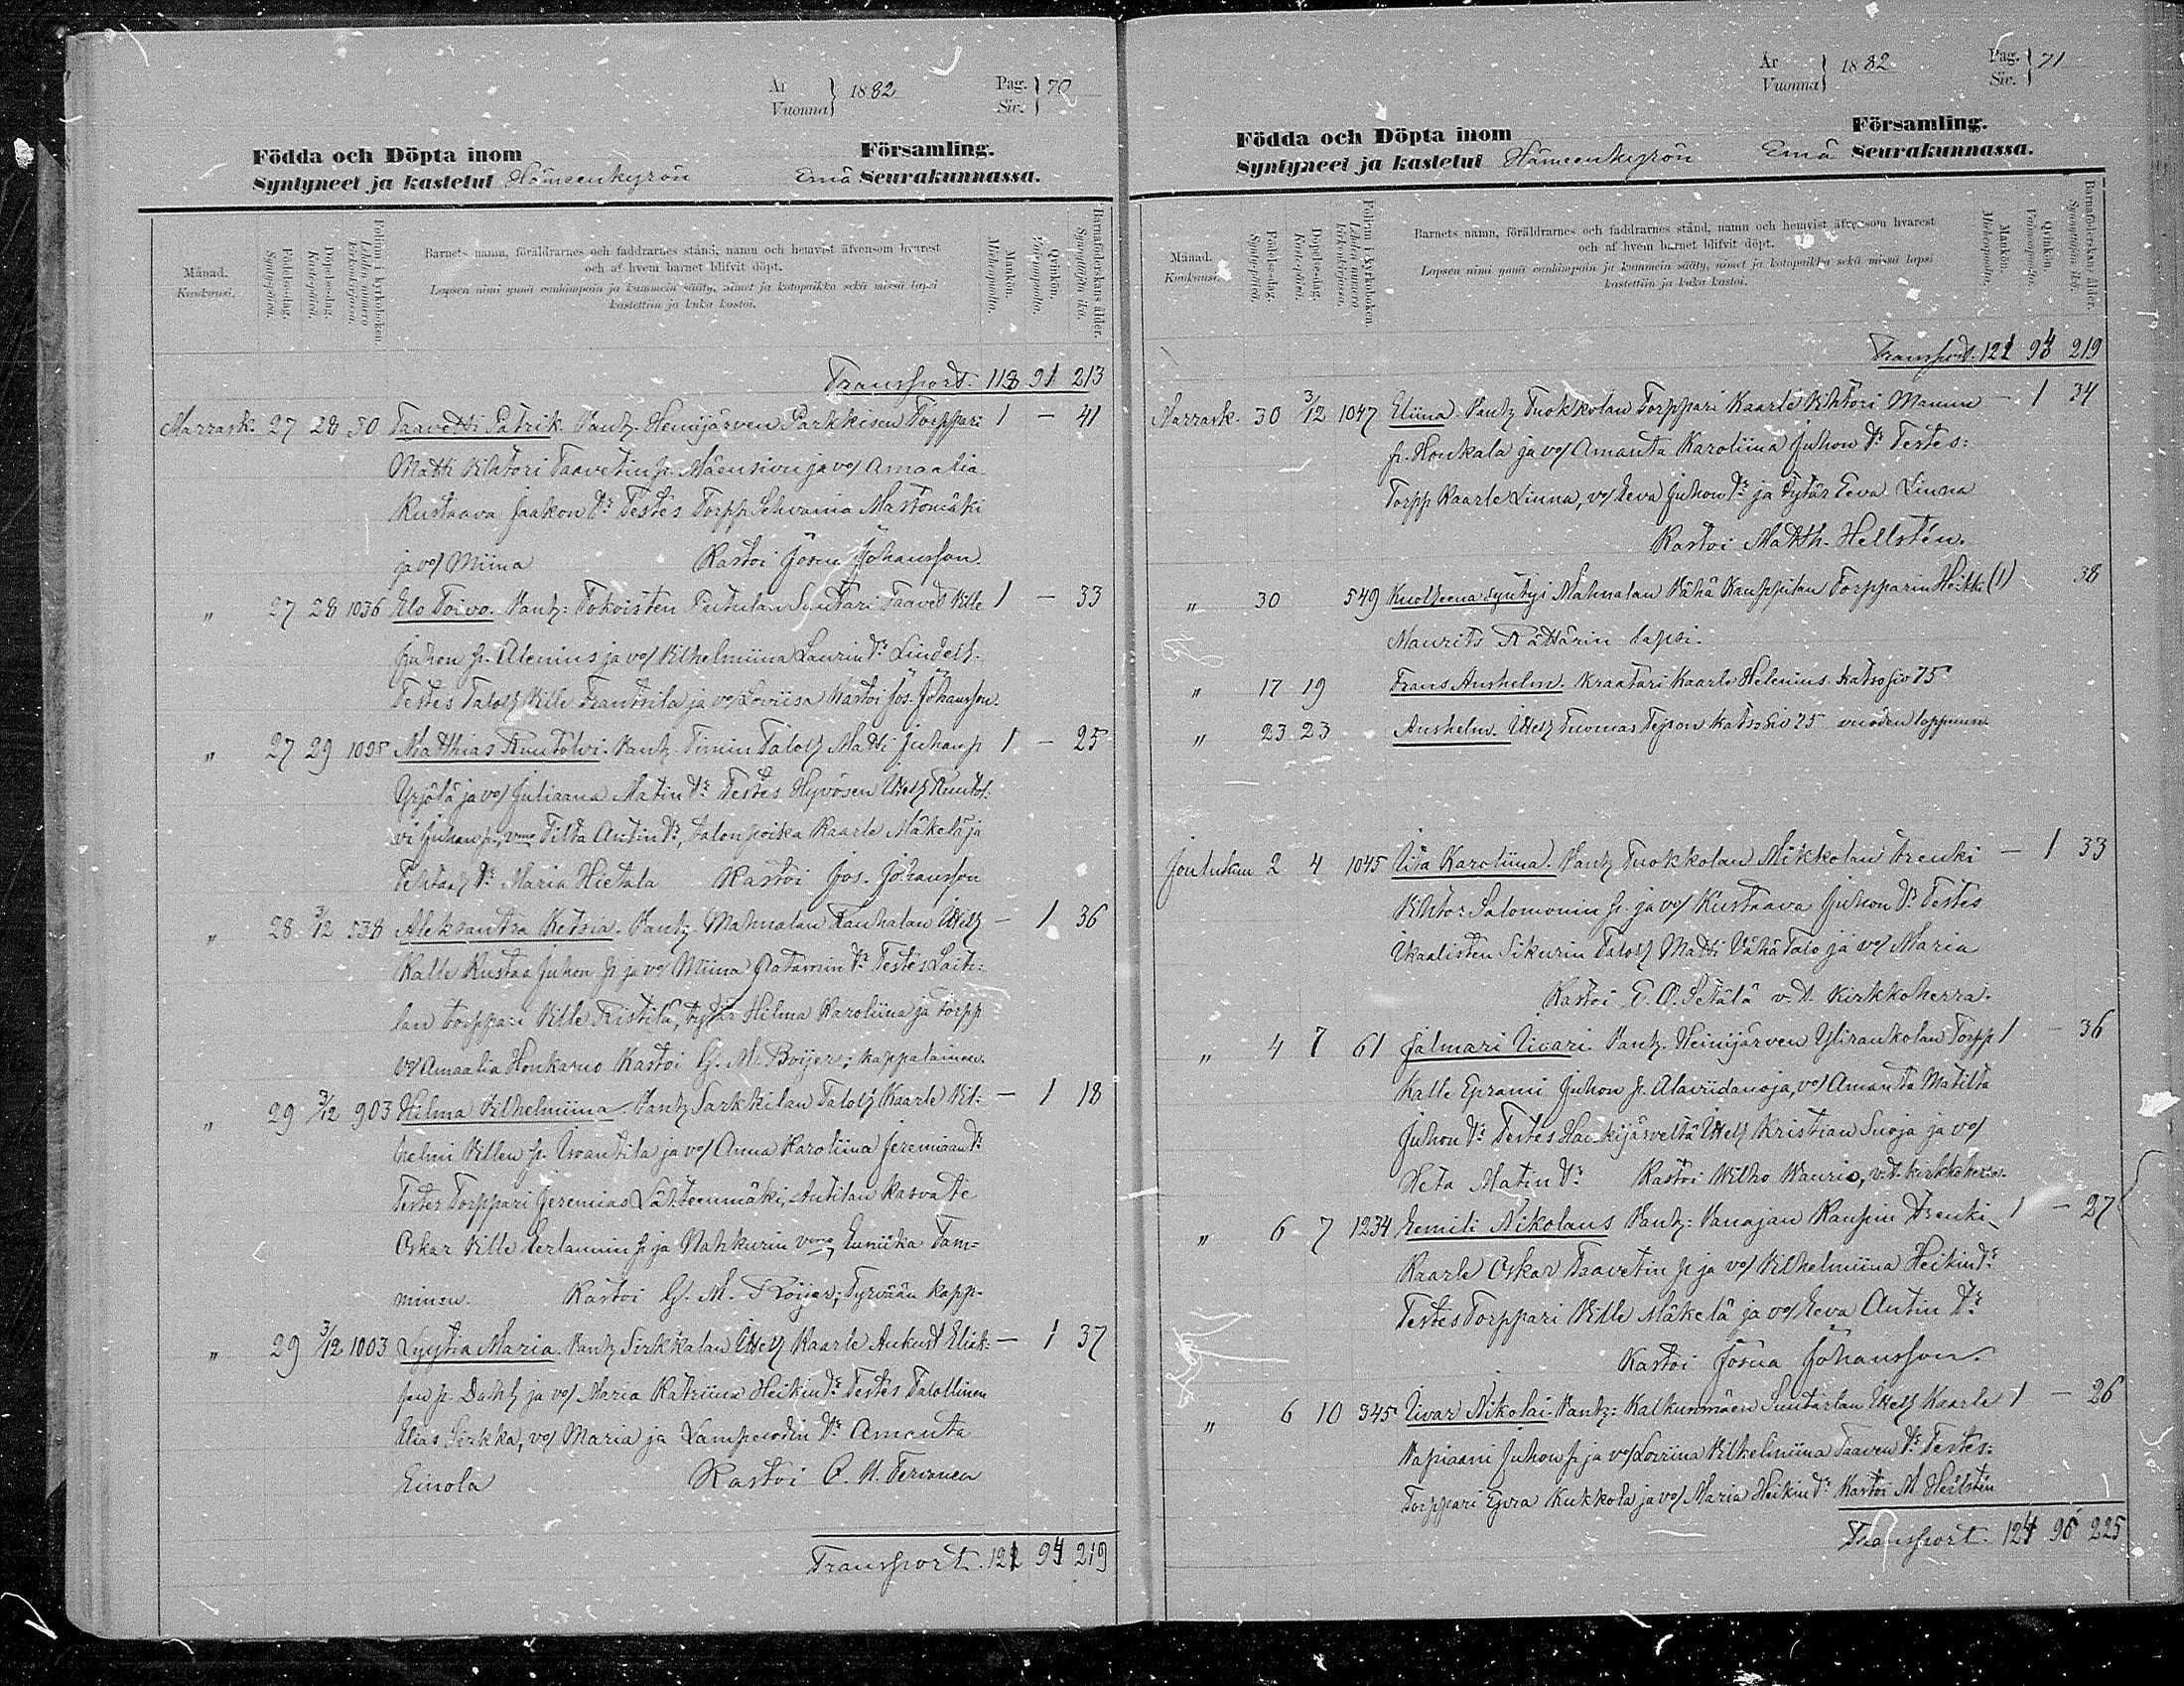 År
Vuonna } 1882
Pag.
Siv. } 70
Födda och Döpta inom
Församling.
Syntyneet ja kastetut Hämeenkyrön Emä Seurakunnassa.
Månad.
Kuukausi.
Födelsedag.
Syntypäivä.
Dopelsedag.
Kastepäivä.
Folium i kyrkoboken
Lehden numero kirkonkirjassa.
Barnets namn, föräldrarnes och faddrarnes stånd, namn och hemvist äfvensom hvarest
och af hvem barnet blifvit döpt.
Lapsen nimi ynnä vanhimpain ja kummein sääty, nimet ja kotopaikka sekä missä lapsi
kastettiin ja kuka kastoi.
Mankön.
Miehenpuolia.
Qvinkön.
Vaimonpuolia.
Barnaföderskans ålder.
Synnyttäjän ikä.
Transport. 118 91 213
Marrask. 27 28 50 Taavetti Patrik. Vanh. Heinijärven Parkkisen Torppari 1 — 41
Matti Vihtori Taavetin p. Mäensivu ja vo/ Amaalia
Kustaava Jaakon tr. Testes Torpp. Mastomäki
ja vo/ Miina Kastoi Josua Johansson.
" 27 28 1036 Elo Toivo. Vanh: Tokoisten Suutari Taavet Ville 1 — 33
Juhon p. Alenius ja vo/ Vilhelmiina Laurin tr. Lindell.
Testes Talol. Ville Frantsila ja vo/ Loviisa Kastoi Jos. Johansson.
" 27 29 1095 Matthias Ruutolvi. Vanh. Timin Talol. Matti Juhan p 1 — 25
Yrjölä ja vo/ Juliaana Matin tr. Testes Hyvösen Itsell.
vi Juhan p., Tilta Antin tr, talonpoika Kaarle Mäkelä ja
tr. Maria Hietala Kastoi Jos. Johansson
" 28 3/12 538 Aleksantra Ketsia. Vanh. Mahnalan Rauhalan Itsell. — 1 36
Kalle Kustaa Juhon p ja vo Miina Aatamin tr. Testes Lait:
lan torppari Ville Ristila, tytär Hilma Karoliina ja torpp
vo/ Amaalia Honkasuo Kastoi G. M. Boijer; kappalainen.
" 29 3/12 903 Hilma Vilhelmiina. Vanh Sarkkilan Talol. Kaarle Vil: — 1 18
helmi Villen p. Uvantila ja vo/ Anna Karoliina Jeremiaan tr.
Testes Torppari Jeremias Lätteenmäki, Antilan kasvate
Oskar Ville Eerlannin p ja Nahkurin Euniika Tam=
minen. Kastoi G. M. Boijer; Tyrvään kapp.
" 29 3/12 1003 Lyytia Maria. Vanh Sirkkalan Itsell. Kaarle Aukust Eliak: — 1 37
pen p. Dahl ja vo/ Maria Katriina Heikin tr. Testes Talollinen
Elias Sirkka, vo/ Maria ja Lampuodin tr. Amanta
Einola Kastoi
Transport. 121 94 219
År
Vuonna } 1882
Pag.
Siv. } 71
Födda och Döpta inom
Församling.
Syntyneet ja kastetut Hämeenkyrön Emä Seurakunnassa.
Månad.
Kuukausi.
Födelsedag.
Syntypäivä.
Dopelsedag.
Kastepäivä.
Folium i kyrkoboken
Lehden numero kirkonkirjassa.
Barnets namn, föräldrarnes och faddrarnes stånd, namn och hemvist äfvensom hvarest
och af hvem barnet blifvit döpt.
Lapsen nimi ynnä vanhimpain ja kummein sääty, nimet ja kotopaikka sekä missä lapsi
kastettiin ja kuka kastoi.
Mankön.
Miehenpuolia.
Qvinkön.
Vaimonpuolia.
Barnaföderskans ålder.
Synnyttäjän ikä.
Transport. 121 94 219
Marrask. 30 3/12 1047 Eliina. Vanh Tuokkolan Torppari Kaarle Vihtori Manun — 1 34
p. Honkala ja vo/ Amanta Karoliina Juhon tr. Testes:
Torpp Kaarle Linna, vo/ Eeva Juhon tr. ja Tytär Eeva Linna
Kastoi Matth. Hellstén.
" 30 549 Kuolleena syntyi Mahnalan Vähä Kauppilan Torpparin Heikki (1) 38
Maurits Rättärin lapsi.
" 17 19 Frans Anshelm. Kraatari Kaarle Helenius. katso siv 75
" 23 23 Anshelm. Itsell Tuomas katso Siv 75 vuoden loppuun.
Joulukuu 2 4 1045 Iita Karoliina. Vanh Tuokkolan Mikkolan trenki — 1 33
Vihtor Salomonin p. ja vo/ Kustaava Juhon tr Testes
Ikaalisten Sikurin Talol. Matti Vähä Talo ja vo/ Maria
Kastoi E. O. Setälä v.t. kirkkoherra.
" 4 7 61 Jalmari Iivari. Vanh. Heinijärven Ylirankolan Torpp 1 — 36
Kalle Eprami Juhon p. Alaviidanoja, vo/ Amanta Matilta
Juhon tr. Testes Haukijärveltä Itsell Kristian Suoja ja vo/
Heta Matin tr. Kastoi Wilho Waurio, v.t. kirkkoherra.
" 6 7 1234 Eemili Nikolaus Vanh: Vanajan Kaupin trenki 1 — 27
Kaarle Oskar Taavetin p ja vo/ Vilhelmiina Heikin tr.
Testes Torppari Ville Mäkelä ja vo/ Eeva Antin tr.
Kastoi Josua Johansson.
" 6 10 345 Iivar Nikolai. Vanh: Kalkunmäen Suutarlan Itsell Kaarle 1 — 26
Juhon p ja vo/ Loviina Vilhelmiina Taaven tr. Testes:
Torppari Kukkola ja vo/ Maria Heikin tr. Kastoi M. Hellstén
Transport. 124 96 225